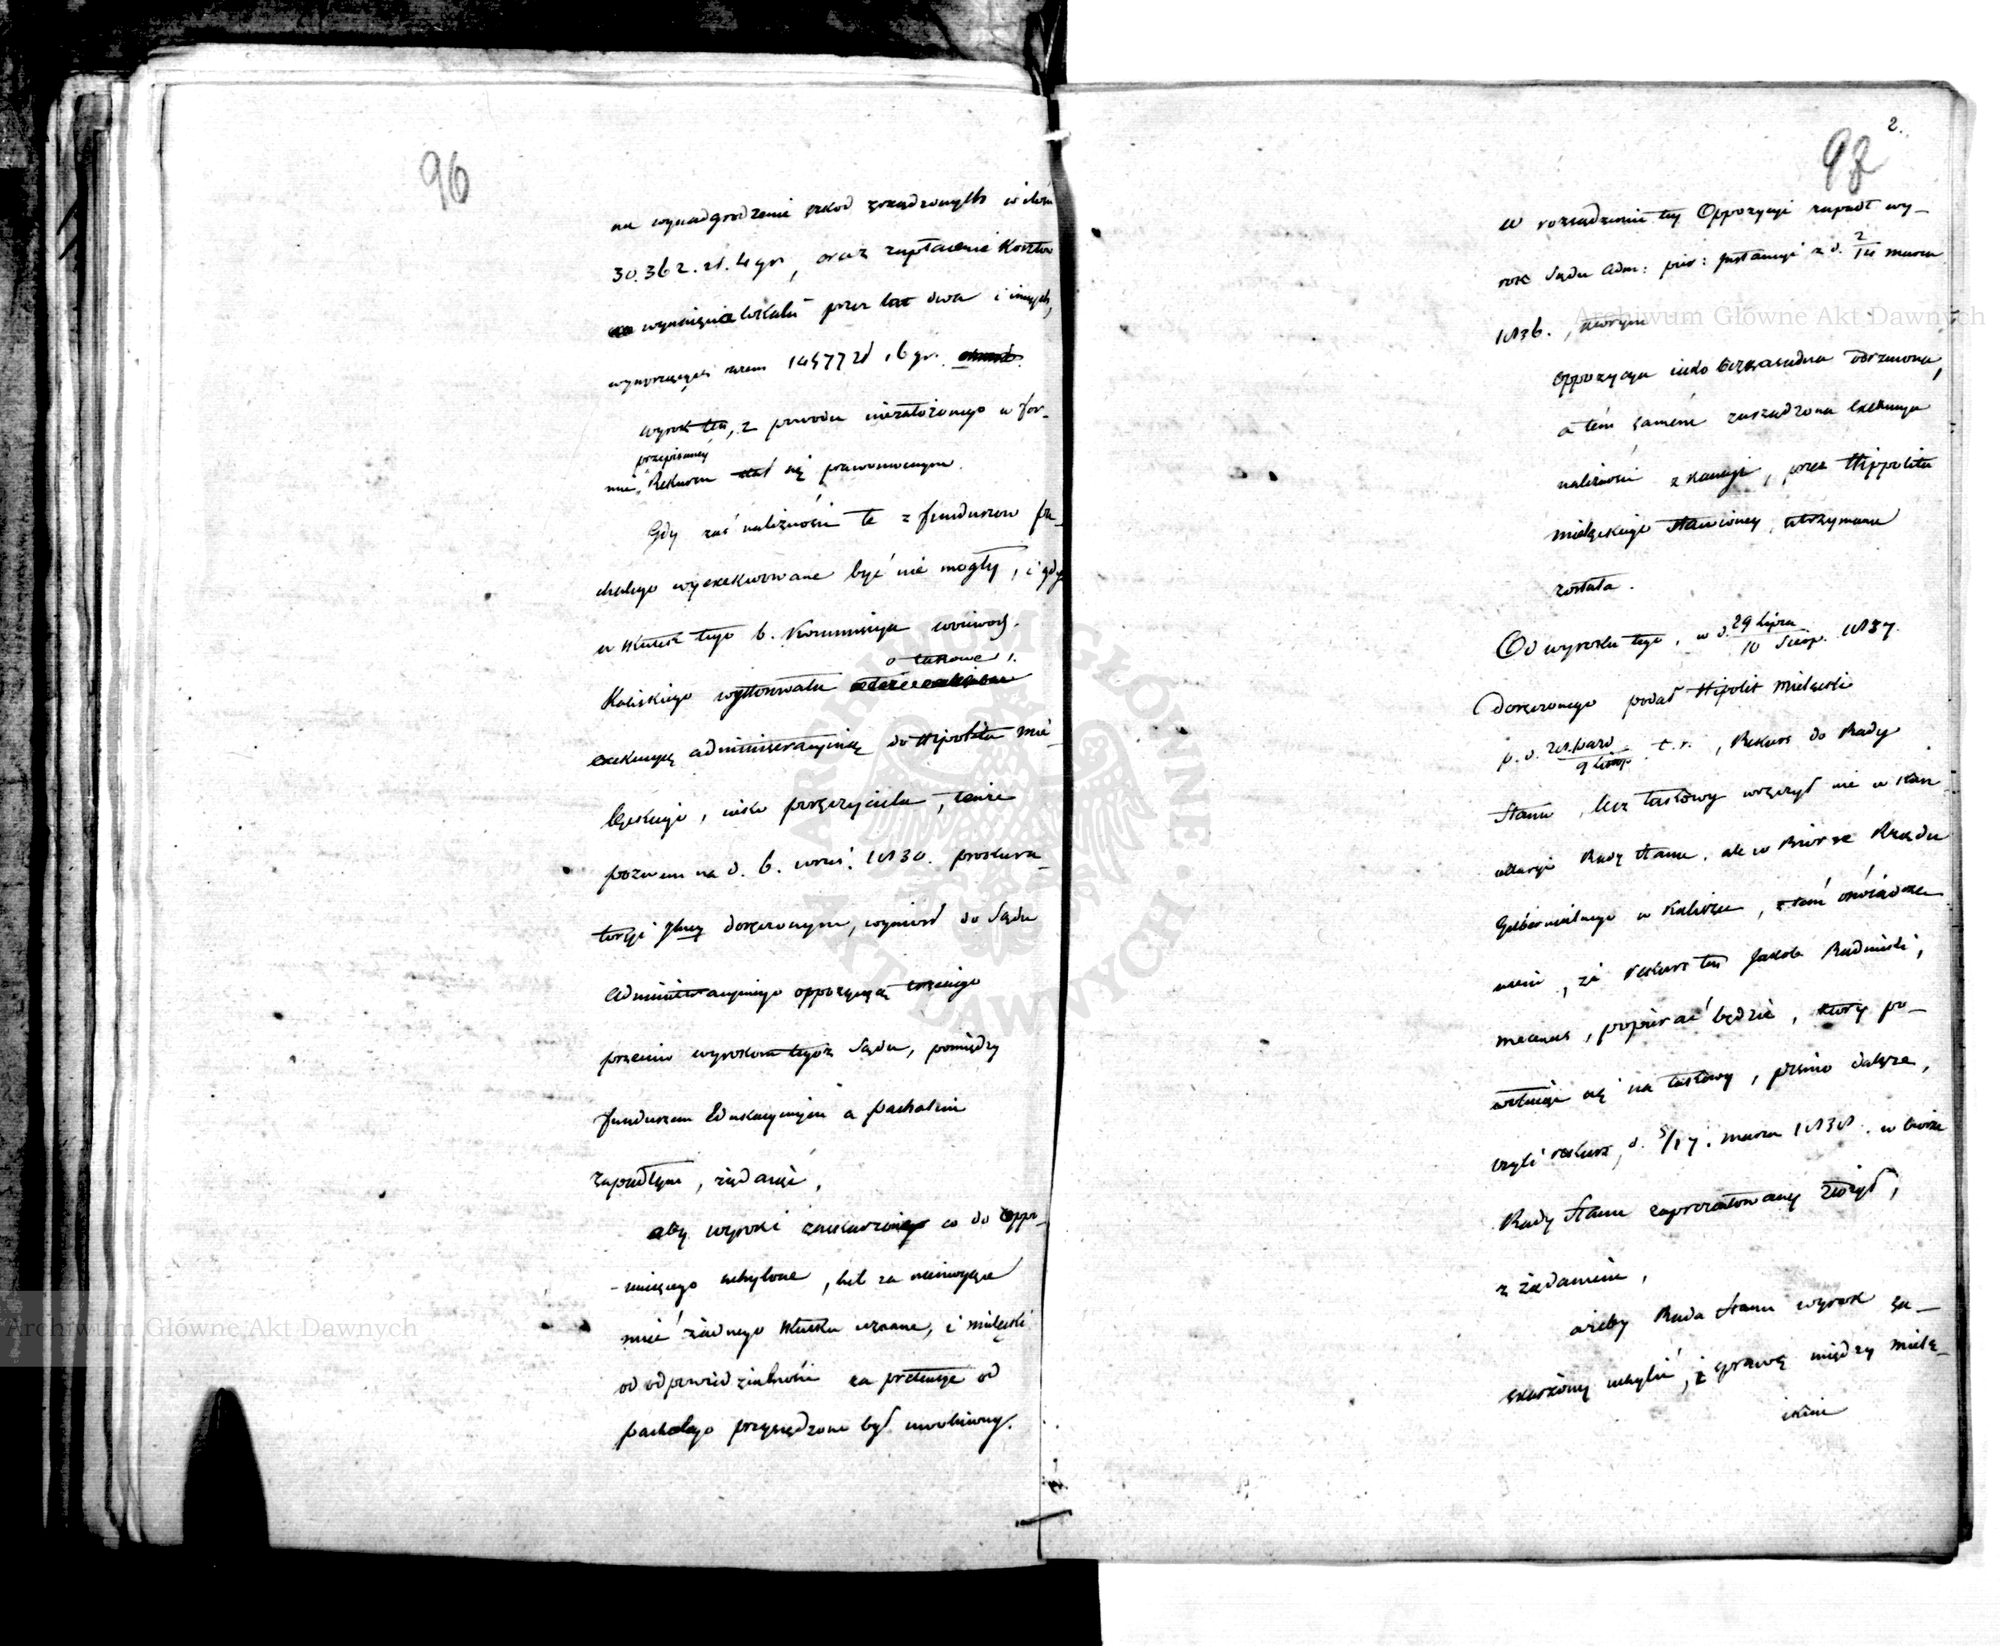 96
na wynadgrodzenie szkod zrządzonych w ilości
30.362. zł. 4 gr, oraz zapłacenie Kosztów
wynajęcia lokalu przez lat dwa i innych,
wynoszących razem 14577 zł 16 gr.
wyrok ten, z powodu niezałożonego w for-
przepisaney
mie, Rekursu stał się prawomocnym.
Gdy zaś należności te z funduszow Pa-
chalego wyexekwowane być nie mogły, i gdy
w skutek tego b. Kommissya wojewodz.
o takowe
Kaliskiego wystosowała
exekucyą administracyiną do Hipolita Mie-
lęckiego, iako poręczyciela, tenże
pozwem na d. 6. wrześ: 1830. prokura-
toryi Jlney doręczonym, wyniosł do Sądu
Administracyinego oppozycyą trzeciego
przeciw wyrokom tegoż Sądu, pomiędzy
funduszem Edukacyinym a Pachalim
zapadłym, żądaiąc,
aby wyroki zaskarżone co do oppo-
nuiącego uchylone, lub za niemogące
mieć żadnego skutku uznane, i Mielęcki
od odpowiedzialności za pretensye od
Pachalego przysądzone był uwolniony.
2.
98
W rozsądzeniu tey Oppozycyi zapadł wy-
rok Sądu Adm: pier: Instancyi z d. 2/14 marca
1836., którym
oppozycya iako bezzasadna odrzucona,
a tém samém zarządzona exekucya
należności z kaucyi, przez Hippolita
Mielęckiego stawioney, utrzymana
została.
Od wyroku tego, w d. 29 Lipca/10 Sierp. 1837.
doręczonego podał Hipolit Mielęcki
p. d. 28. Paźd/9 Listop. t. r., Rekurs do Rady
Stanu, lecz takowy wręczył nie w Kan-
cellaryi Rady Stanu, ale w Biórze Rządu
Gubernialnego w Kaliszu, z tém oświadcze-
niem, że rekurs ten Jakób Radwiński,
mecenas, popierać będzie, który po-
wołuiąc się na takowy, pismo dalsze,
czyli rekurs, d. 5/17. marca 1838. w biórze
Rady Stanu zaprezentowany złożył,
z żądaniem,
ażeby Rada Stanu wyrok za-
skarżony uchylić, i sprawę między Mielę-
ckim